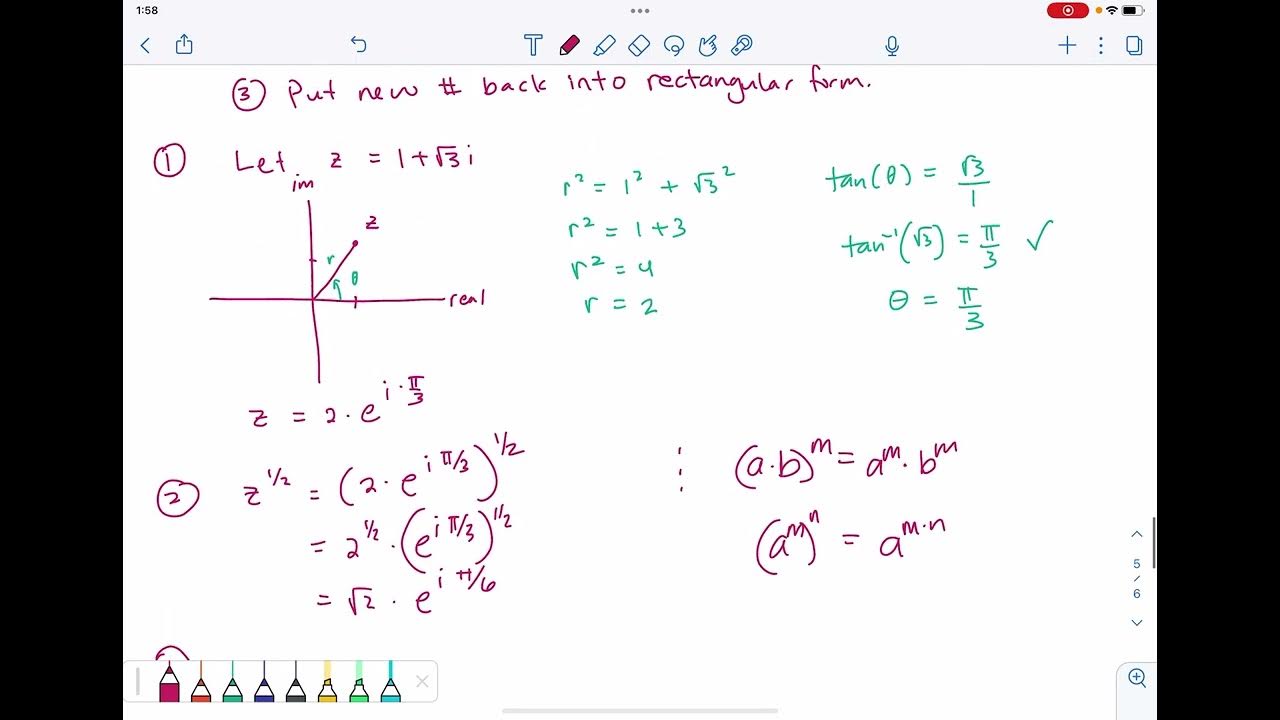 1:58
T
③ Put new # back into rectangular form.
① Let z = 1 + √3 i
im
z
r
θ
real
r² = 1² + √3²
r² = 1 + 3
r² = 4
r = 2
tan(θ) = √3/1
tan⁻¹(√3) = π/3 ✓
θ = π/3
z = 2 · e^(i · π/3)
② z^(1/2) = (2 · e^(i π/3))^(1/2)
= 2^(1/2) · (e^(i π/3))^(1/2)
= √2 · e^(i π/6)
(a·b)^m = a^m · b^m
(a^m)^n = a^(m·n)
5
/
6